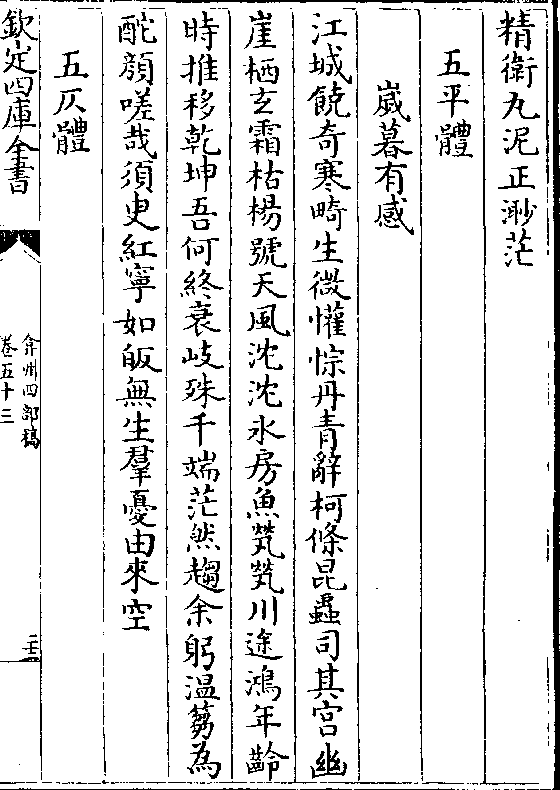 精衛丸泥正渺茫
五平體
嵗暮有感
江城饒奇寒畸生微懽悰丹青辭柯條昆蟲司其宫幽
崖栖玄霜枯楊號天風沈沈氷房魚煢煢川途鴻年齡
時推移乾坤吾何終衰岐殊千端茫然趨余躬温蒭為
酡顔嗟哉須臾紅寧如皈無生羣憂由來空
五仄體
欽定四庫全書
弇州四部稿
卷五十三
二十